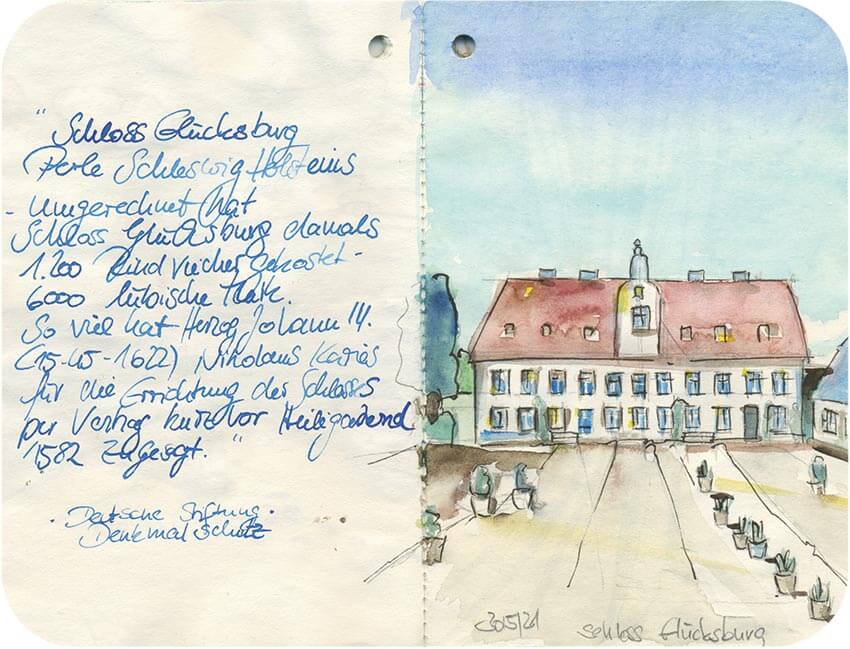 " Schloss Glücksburg
Perle Schleswig Holsteins
- Umgerechnet hat
Schloss Glücksburg damals
1.200 Rindviecher gekostet -
6000 lübische Mark.
So viel hat Herzog Johann
(15-45-1622) Nikolaus Karies
für die Errichtung des Schlosses
per Vertrag kurz vor Heiligabend
1582 zugesagt. "
· Deutsche Stiftung ·
Denkmalschutz
Schloss Glücksburg